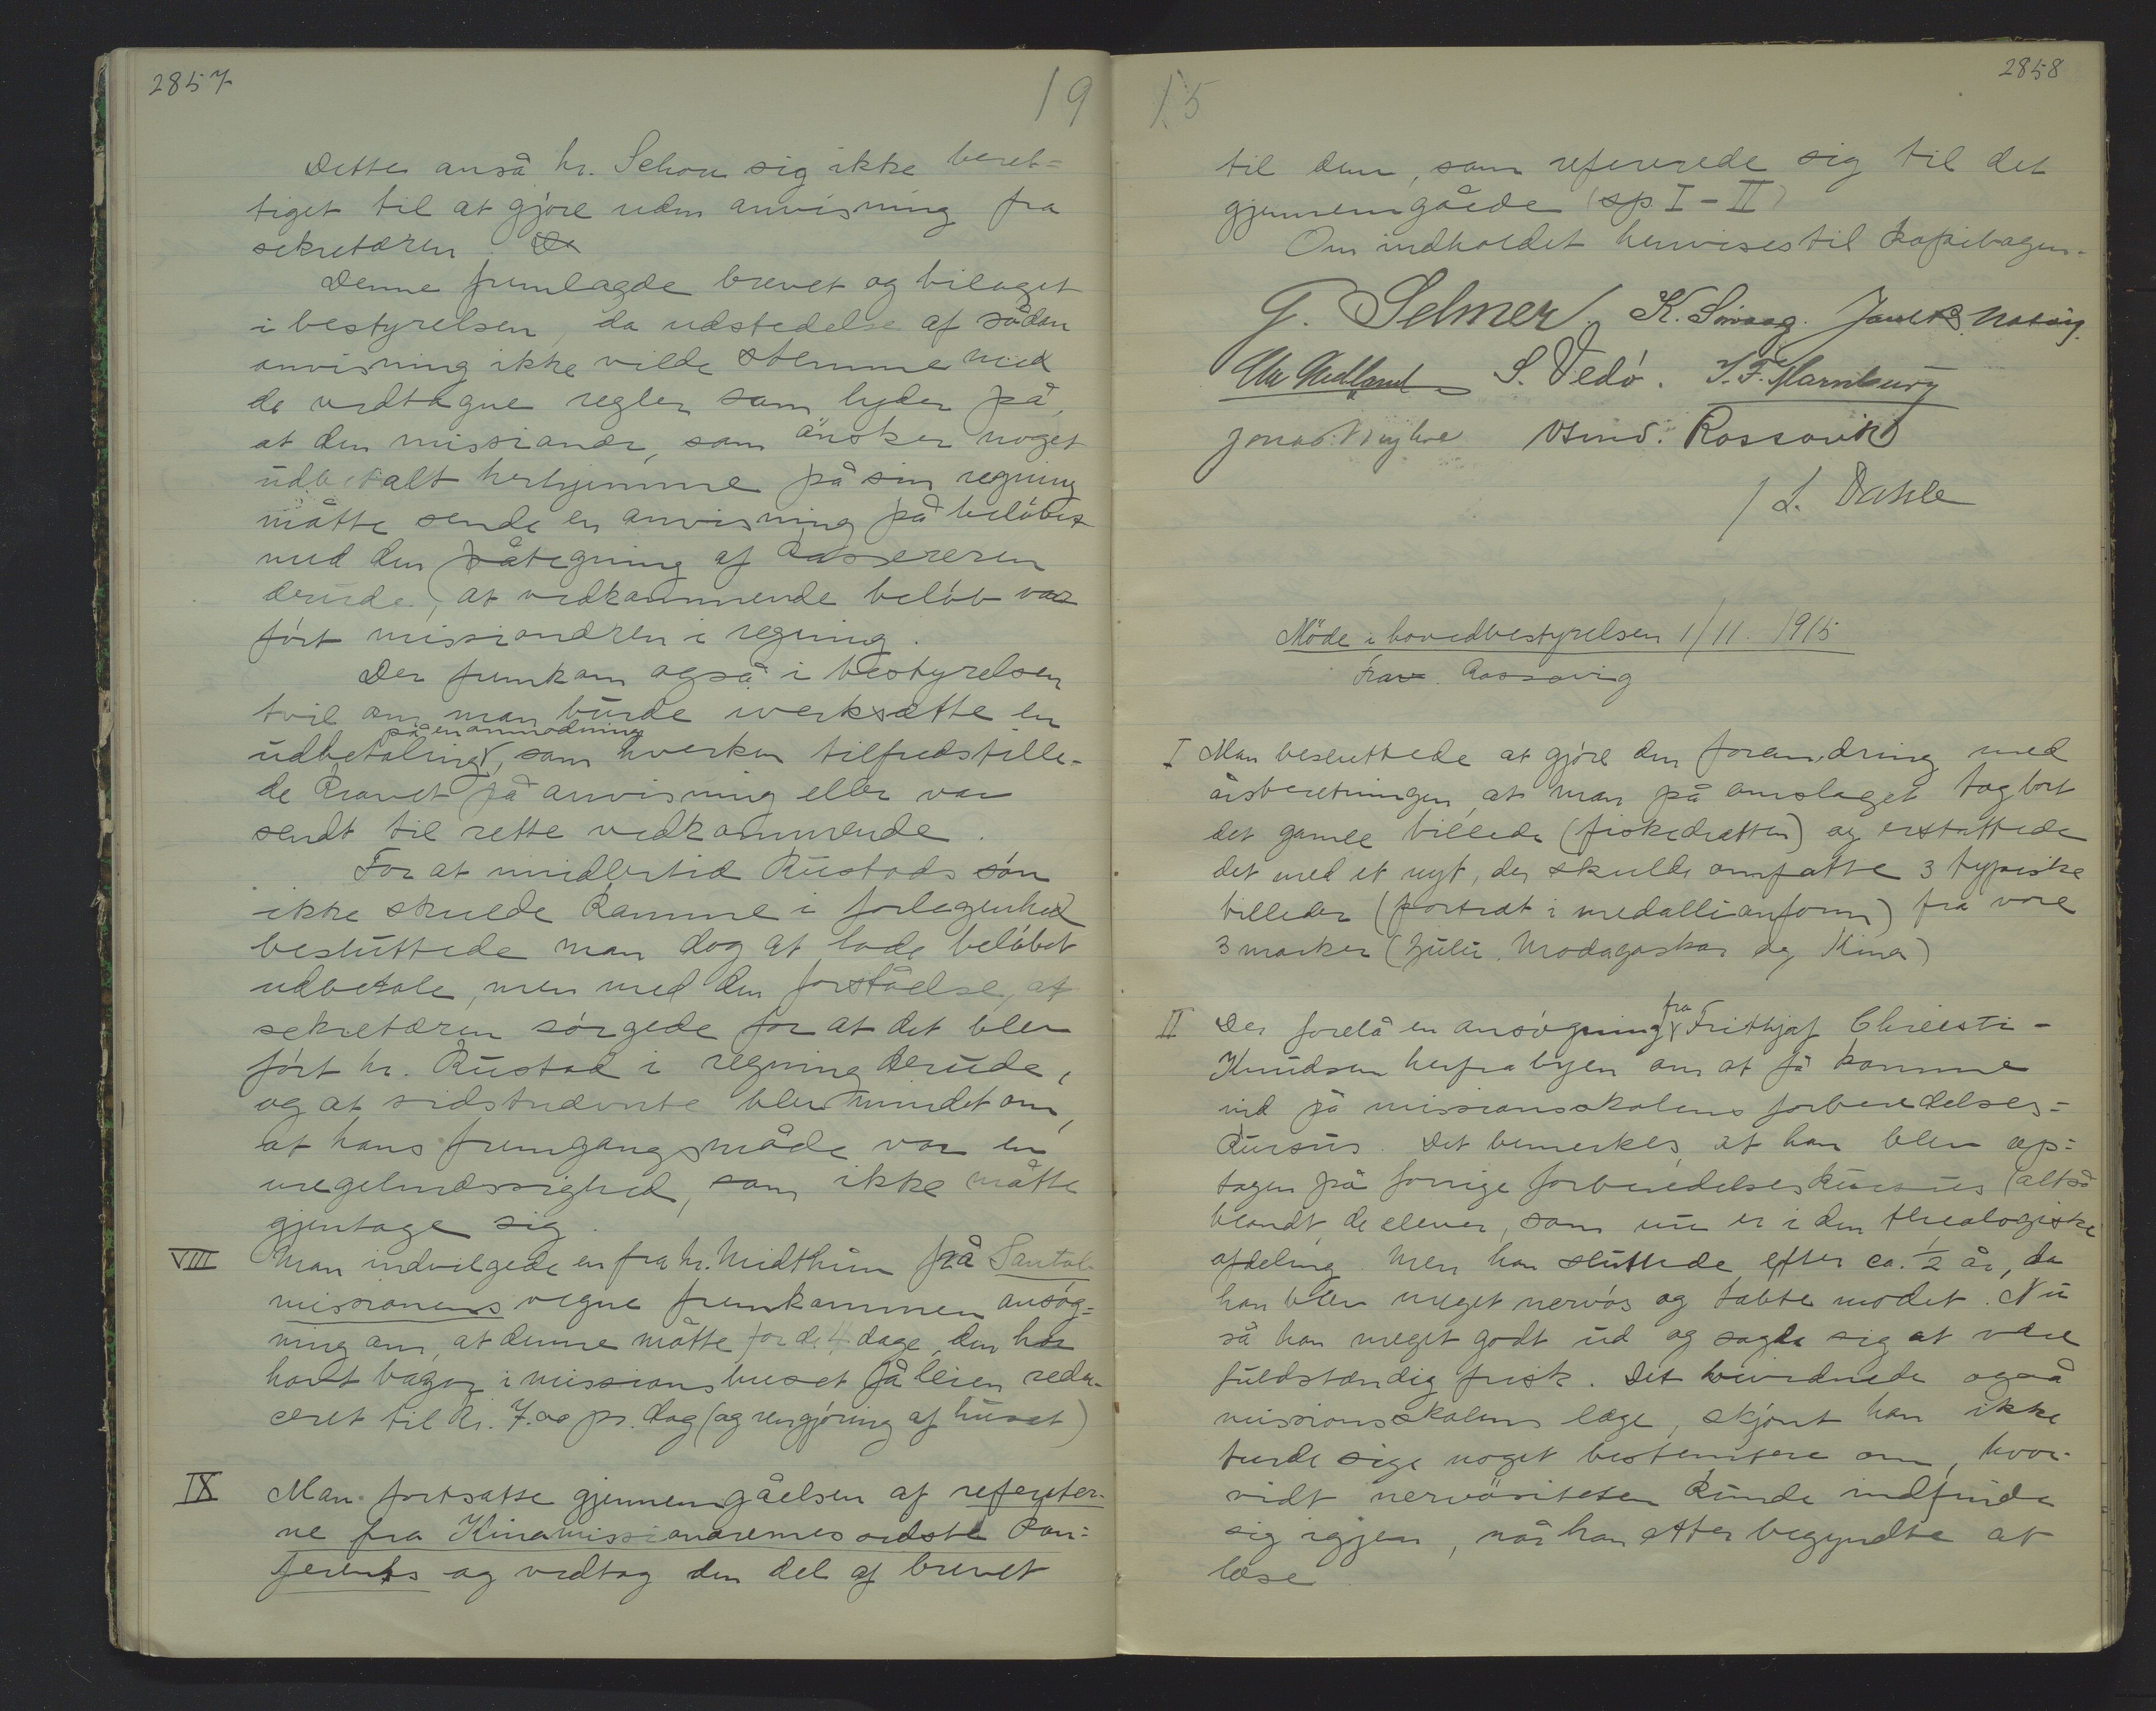 2857
19
Dette anså hr. Schou sig ikke beret-
tiget til at gjöre uden anvisning fra
sekretæren.
Denne fremlagde brevet og bilaget
i bestyrelsen, da udstedelse af sådan
anvisning ikke vilde stemme med
de vedtagne regler som lyder på,
at den missionær, som önsker noget
udbetalt herhjemme på sin regning
måtte sende en anvisning på belöbet
med den påtegning af kassereren
derude, at vedkommende belöb var
fört missionæren i regning.
Der fremkom også i bestyrelsen
tvil om man burde iverksætte en
på en anmodning
udbetaling, som hverken tilfredsstille-
de kravet på anvisning eller var
sendt til rette vedkommende.
For at imidlertid Rustads sön
ikke skulde komme i forlegenhed
besluttede man dog at lade belöbet
udbetale, men med den forståelse, at
sekretæren sörgede for at det blev
fört hr. Rustad i regning derude,
og at sidstnævnte blev mindet om,
at hans fremgangsmåde var en
uregelmæssighed, som ikke måtte
gjentage sig.
VIII Man indvilgede en fra hr. Midthun på Santal-
missionens vegne fremkommen ansög-
ning om, at denne måtte for de 4 dage, den har
havt bazar i missionshuset få leien redu-
ceret til kr. 7.00 pr. dag (og rengjöring af huset)
IX Man fortsatte gjennemgåelsen af referater-
ne fra Kinamissionærernes sidste kon-
ferents og vedtog den del af brevet
15
2858
til dem, som refererede sig til det
gjennemgåede (sp I - II)
Om indholdet henvises til kopibogen.
G. Selmer. K. Sinaag. Jacob
S. Vedö.
Rossavik
/ L. Dahle
Möde i hovedbestyrelsen 1/11. 1915
Frav. Rossavig
I Man besluttede at gjöre den forandring med
årsberetningen, at man på omslaget tog bort
det gamle billede (fiskedrætten) og erstattede
det med et nyt, der skulde omfatte 3 typiske
billeder (portræt i medallionform) fra vore
3 marker (Zulu. Madagaskar og Kina)
fra
II Der forelå en ansögning Frithjof Christi-
Knudsen herfra byen om at få komme
ind på missionsskolens forberedelses-
kursus. Det bemerkes, at han blev op-
tagen på forrige forberedelseskursus (altså
blandt de elever, som nu er i den theologiske
afdeling. Men han sluttede efter ca. 1/2 år, da
han blev meget nervös og tabte modet. Nu
så han meget godt ud og sagde sig at være
fuldstændig frisk. Det bevidnede også
missionsskolens læge, skjönt han ikke
turde sige noget bestemtere om, hvor-
vidt nervösiteten kunde indfinde
sig igjen, når han atter begyndte at
læse